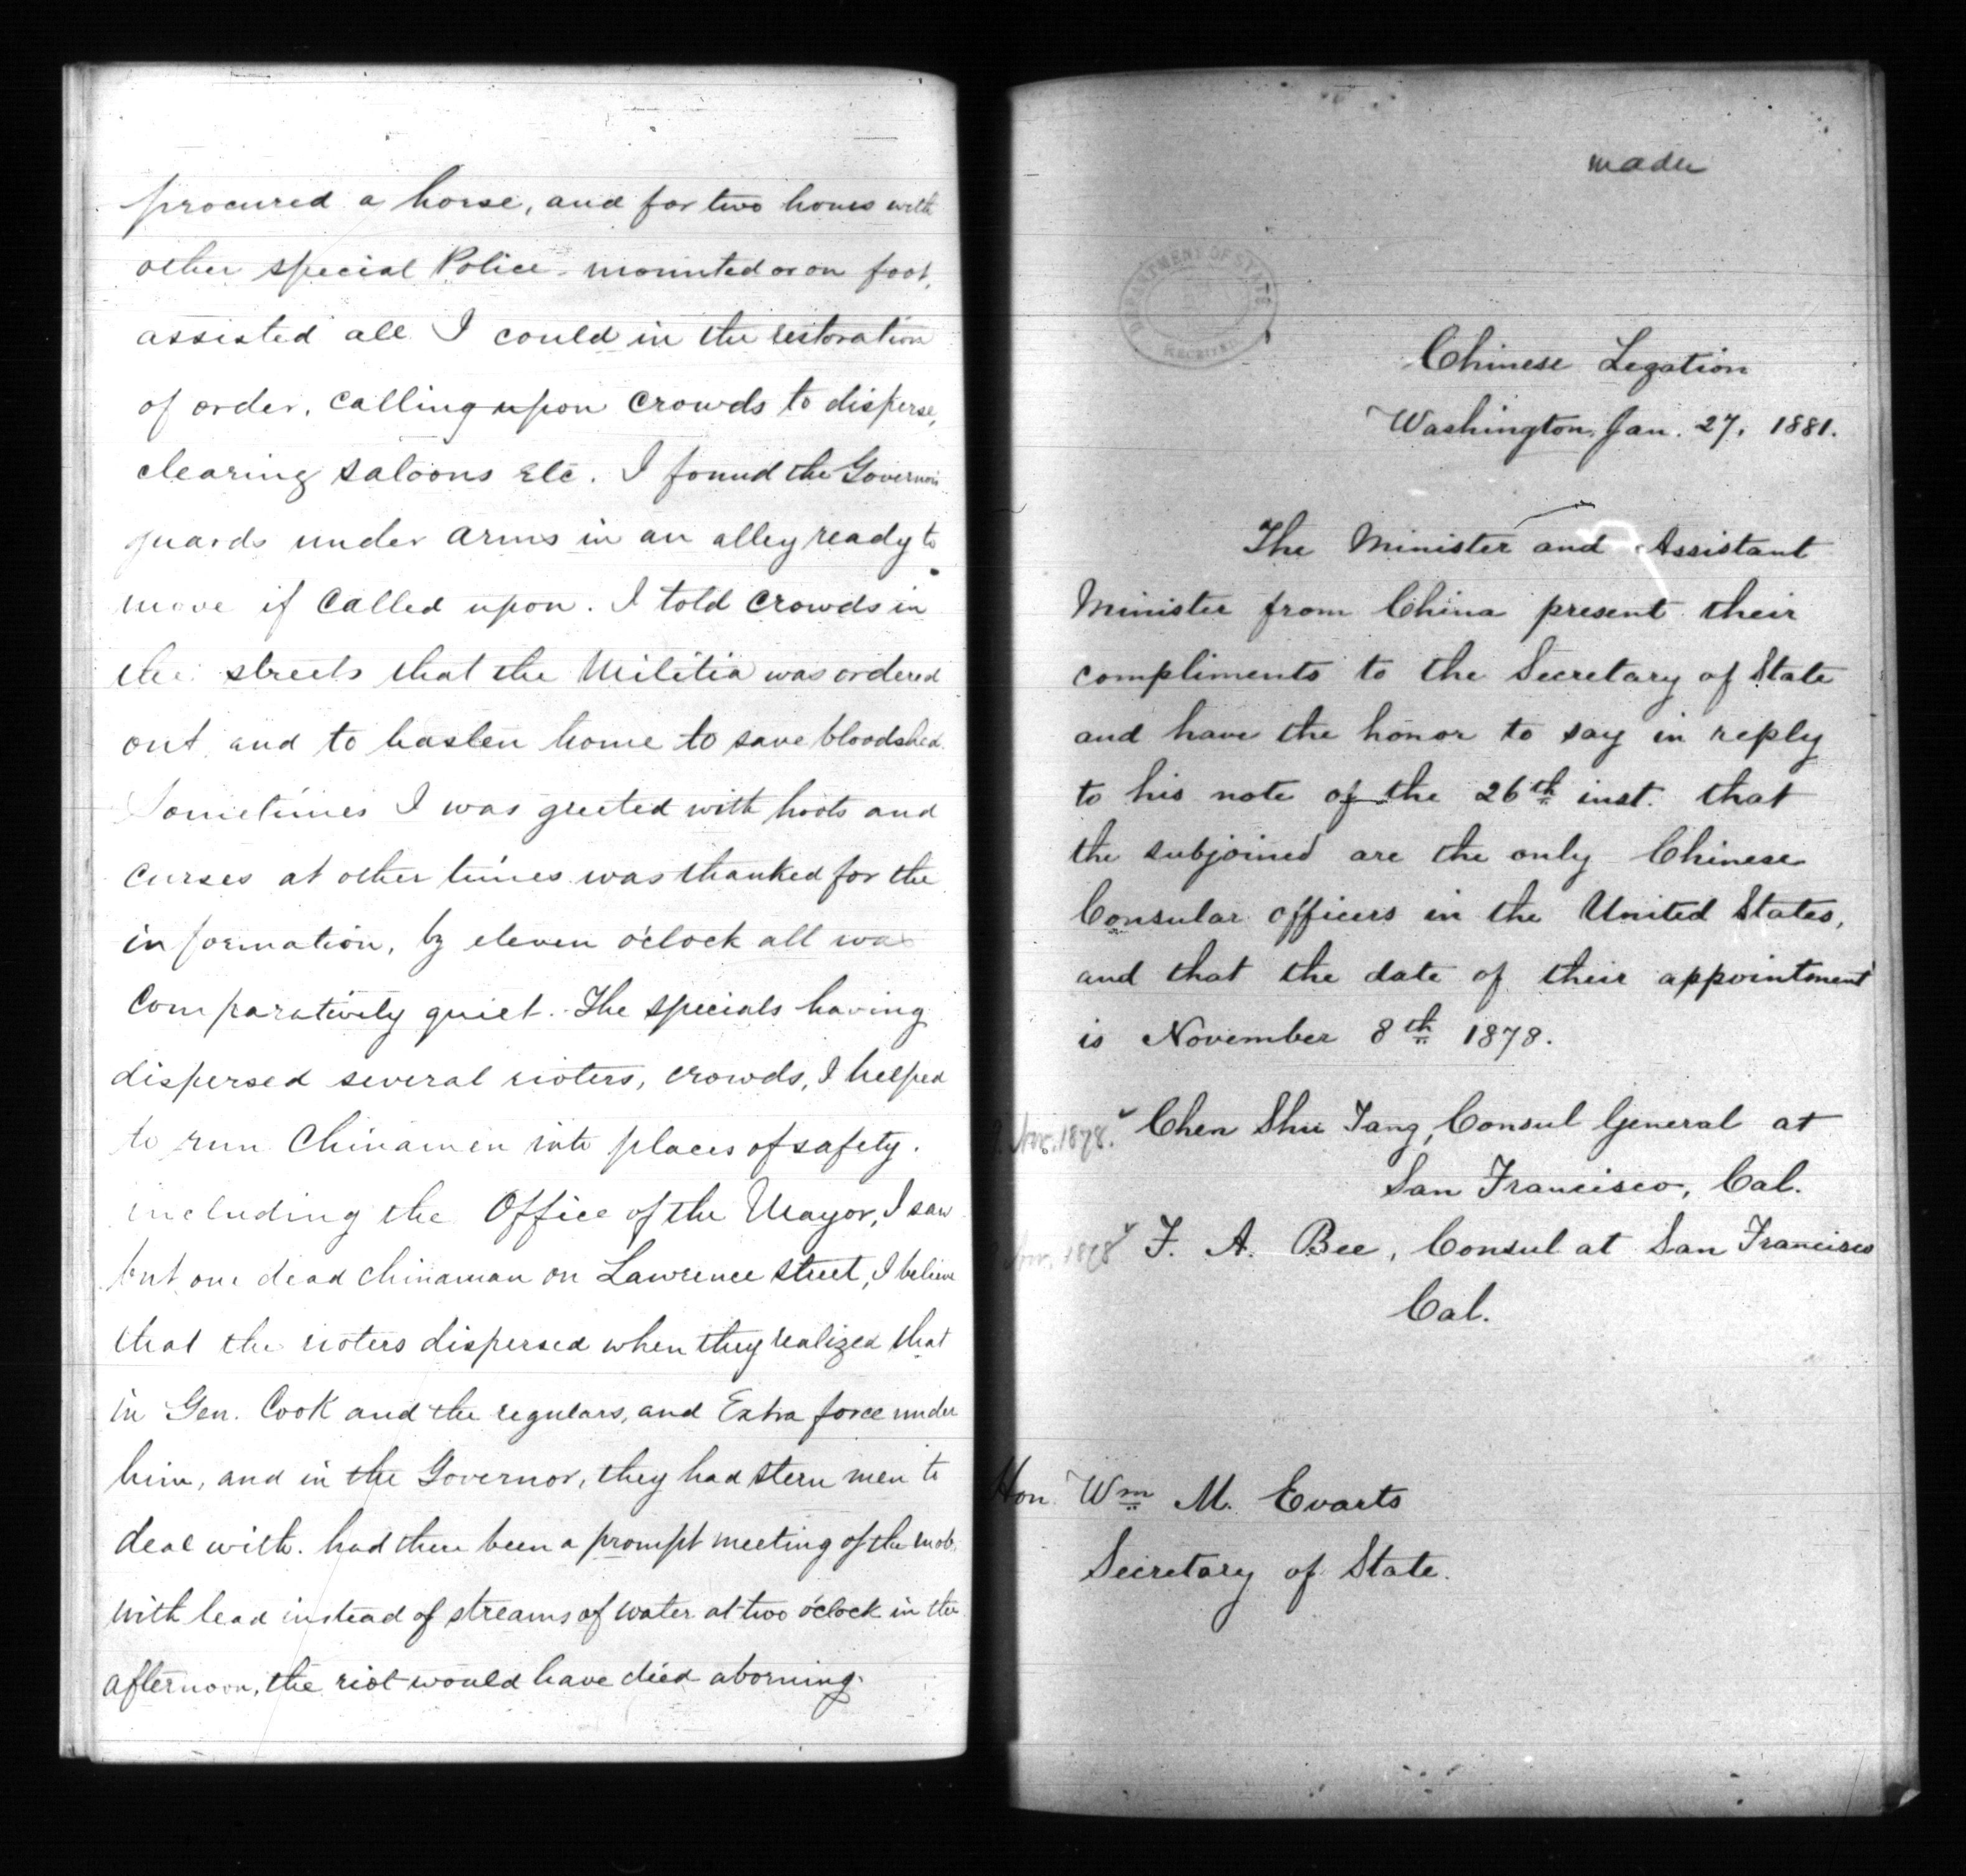 procured a horse, and for two hours with
other special Police - mounted or on foot,
assisted all I could in the restoration
of order, calling upon crowds to disperse,
clearing saloons etc. I found the Governor's
guards under arms in an alley ready to
move if called upon. I told crowds in
the streets that the Militia was ordered
out and to hasten home to save bloodshed.
Sometimes I was greeted with hoots and
curses at other times was thanked for the
information, by eleven o'clock all was
comparatively quiet. The specials having
dispersed several rioters, crowds, I helped
to run Chinamen into places of safety.
including the Office of the Mayor, I saw
but one dead chinaman on Lawrence street, I believe
that the rioters dispersed when they realized that
in Gen. Cook and the regulars, and Extra force under
him, and in the Governor, they had stern men to
deal with. had there been a prompt meeting of the mob
with lead instead of streams of water at two o'clock in the
afternoon, the riot would have died aborning.
DEPARTMENT OF STATE
RECEIVED
Chinese Legation
Washington, Jan. 27, 1881.
The Minister and Assistant
Minister from China present their
compliments to the Secretary of State
and have the honor to say in reply
to his note of the 26th inst. that
the subjoined are the only Chinese
Consular officers in the United States,
and that the date of their appointment
is November 8th 1878.
Nov. 1878. Chen Shu Tang, Consul General at
San Francisco, Cal.
Nov. 1878 F. A. Bee, Consul at San Francisco
Cal.
Hon. Wm M. Evarts
Secretary of State.